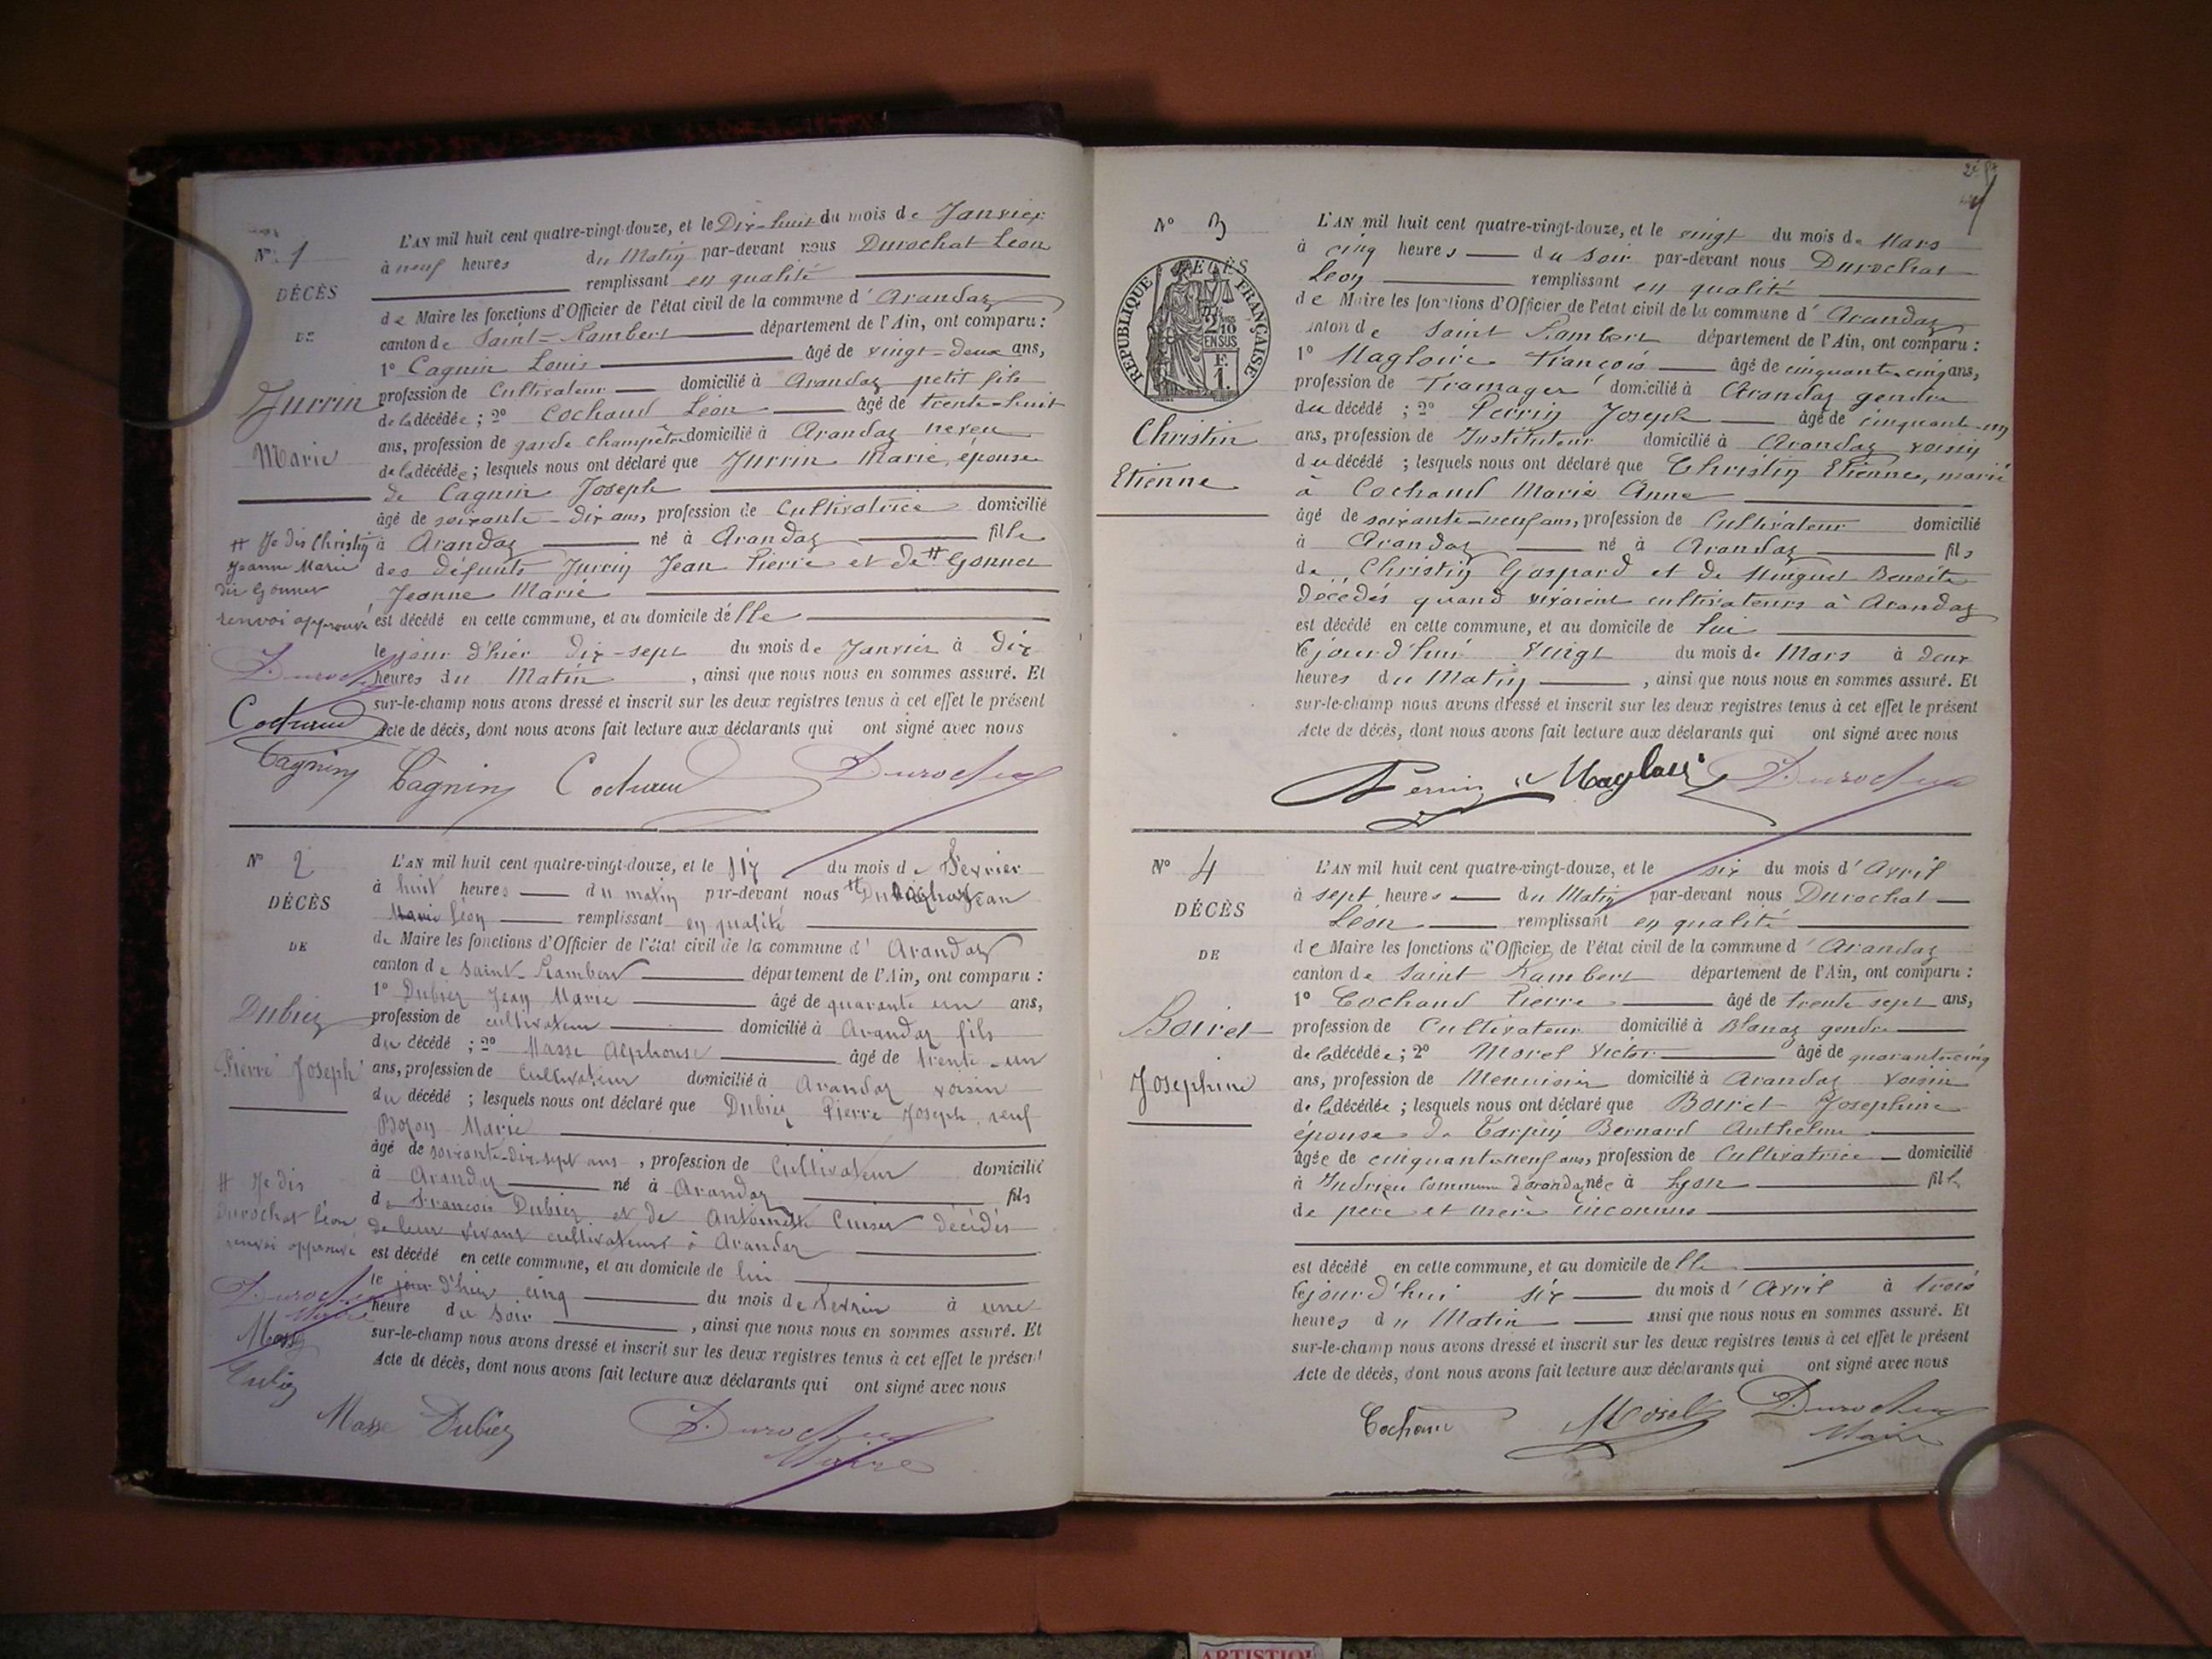 N° 1
DÉCÈS
DE
Jurrin
Marie
L'AN mil huit cent quatre-vingt-douze, et le Dix-huit du mois de Janvier
à neuf heures du Matin par-devant nous Durochat Léon
remplissant en qualité
de Maire les fonctions d'Officier de l'état civil de la commune d'Arandaz
canton de Saint-Rambert département de l'Ain, ont comparu :
1° Cagnin Louis âgé de vingt-deux ans,
profession de Cultivateur domicilié à Arandaz petit fils
de la décédée ; 2° Cochaud Léon âgé de trente-huit
ans, profession de garde champêtre domicilié à Arandaz neveu
de la décédée ; lesquels nous ont déclaré que Jurrin Marie, épouse
de Cagnin Joseph
âgé de soixante-dix ans, profession de Cultivatrice domicilié
à Arandaz né à Arandaz fille
des défunts Jurrin Jean Pierre et de # Gonnet
Jeanne Marie
est décédé en cette commune, et au domicile d'elle
le jour d'hier dix-sept du mois de Janvier à dix
heures du Matin , ainsi que nous nous en sommes assuré. Et
sur-le-champ nous avons dressé et inscrit sur les deux registres tenus à cet effet le présent
Acte de décès, dont nous avons fait lecture aux déclarants qui ont signé avec nous
# Je dis Christin
Jeanne Marie
renvoi approuvé
Cagnin
Cagnin Durochat
N° 2
DÉCÈS
DE
Dubiez
Pierre Joseph
L'AN mil huit cent quatre-vingt-douze, et le six du mois de Février
à huit heures du matin par-devant nous #
Léon remplissant en qualité
de Maire les fonctions d'Officier de l'état civil de la commune d'Arandaz
canton de Saint-Rambert département de l'Ain, ont comparu :
1° Dubiez Jean Marie âgé de quarante un ans,
profession de cultivateur domicilié à Arandaz fils
du décédé ; 2° Masse Alphonse âgé de trente-un
ans, profession de Cultivateur domicilié à Arandaz voisin
du décédé ; lesquels nous ont déclaré que Dubiez Pierre Joseph, veuf
Bozon Marie
âgé de soixante-dix-sept ans, profession de Cultivateur domicilié
à Arandaz né à Arandaz fils
de François Dubiez et de Antoinette décédés
de leur vivant cultivateurs à Arandaz
est décédé en cette commune, et au domicile de lui
le jour d'hier cinq du mois de Février à une
heure du soir , ainsi que nous nous en sommes assuré. Et
sur-le-champ nous avons dressé et inscrit sur les deux registres tenus à cet effet le présent
Acte de décès, dont nous avons fait lecture aux déclarants qui ont signé avec nous
# Je dis
Durochat Léon
renvoi approuvé
Durochat
Maire
Masse
Dubiez
Masse Dubiez Durochat
Maire
N° 3
DÉCÈS
RÉPUBLIQUE FRANÇAISE
2/10
EN SUS
F.
1.
Christin
Etienne
L'AN mil huit cent quatre-vingt-douze, et le vingt du mois de Mars
à cinq heures du soir par-devant nous Durochat
Léon remplissant en qualité
de Maire les fonctions d'Officier de l'état civil de la commune d'Arandaz
canton de Saint Rambert département de l'Ain, ont comparu :
1° Magloire François âgé de cinquante-cinq ans,
profession de domicilié à Arandaz gendre
du décédé ; 2° Perrin Joseph âgé de cinquante-un
ans, profession de Instituteur domicilié à Arandaz voisin
du décédé ; lesquels nous ont déclaré que Christin Etienne, marié
à Cochaud Marie Anne
âgé de soixante-neuf ans, profession de Cultivateur domicilié
à Arandaz né à Arandaz fils
de Christin Gaspard et de Benoite
décédés quand vivaient cultivateurs à Arandaz
est décédé en cette commune, et au domicile de lui
le jourd'hui vingt du mois de Mars à deux
heures du Matin , ainsi que nous nous en sommes assuré. Et
sur-le-champ nous avons dressé et inscrit sur les deux registres tenus à cet effet le présent
Acte de décès, dont nous avons fait lecture aux déclarants qui ont signé avec nous
Perrin Magloire Durochat
N° 4
DÉCÈS
DE
Boiret
Josephine
L'AN mil huit cent quatre-vingt-douze, et le six du mois d'Avril
à sept heures du Matin par-devant nous Durochat
Léon remplissant en qualité
de Maire les fonctions d'Officier de l'état civil de la commune d'Arandaz
canton de Saint Rambert département de l'Ain, ont comparu :
1° Cochaud Pierre âgé de trente sept ans,
profession de Cultivateur domicilié à Blanaz gendre
de la décédée ; 2° Morel Victor âgé de quarante-cinq
ans, profession de Menuisier domicilié à Arandaz voisin
de la décédée ; lesquels nous ont déclaré que Boiret Josephine
épouse de Tarpin Bernard Anthelme
âgée de cinquante-neuf ans, profession de Cultivatrice domicilié
à Indrieu commune d'Arandaz née à Lyon fille
de père et mère inconnus
est décédé en cette commune, et au domicile d'elle
le jourd'hui six du mois d'Avril à trois
heures du Matin ainsi que nous nous en sommes assuré. Et
sur-le-champ nous avons dressé et inscrit sur les deux registres tenus à cet effet le présent
Acte de décès, dont nous avons fait lecture aux déclarants qui ont signé avec nous
Cochaud Morel Durochat
Maire